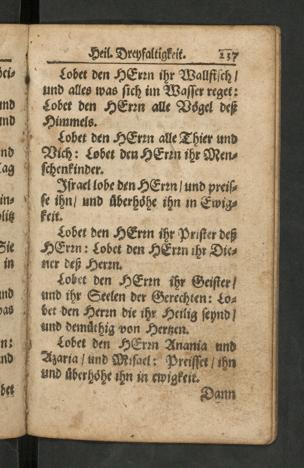 Heil. Dreyfaltigkeit. 257
Lobet den HErrn ihr Wallfisch /
und alles was sich im Wasser reget:
Lobet den HErrn alle Vögel deß
Himmels.
Lobet den HErrn alle Thier und
Vich: Lobet den HErrn ihr Men-
schenkinder.
Israel lobe den HErrn / und preis-
se ihn / und überhöhe ihn in Ewig-
keit.
Lobet den HErrn ihr Prister deß
HErrn: Lobet den HErrn ihr Die-
ner deß Herrn.
Lobet den HErrn ihr Geister /
und ihr Seelen der Gerechten: Lo-
bet den Herrn die ihr Heilig seynd /
und demüthig von Hertzen.
Lobet den HErrn Anania und
Azaria / und Misael: Preisset / ihn
und überhöhe ihn in ewigkeit.
Dann